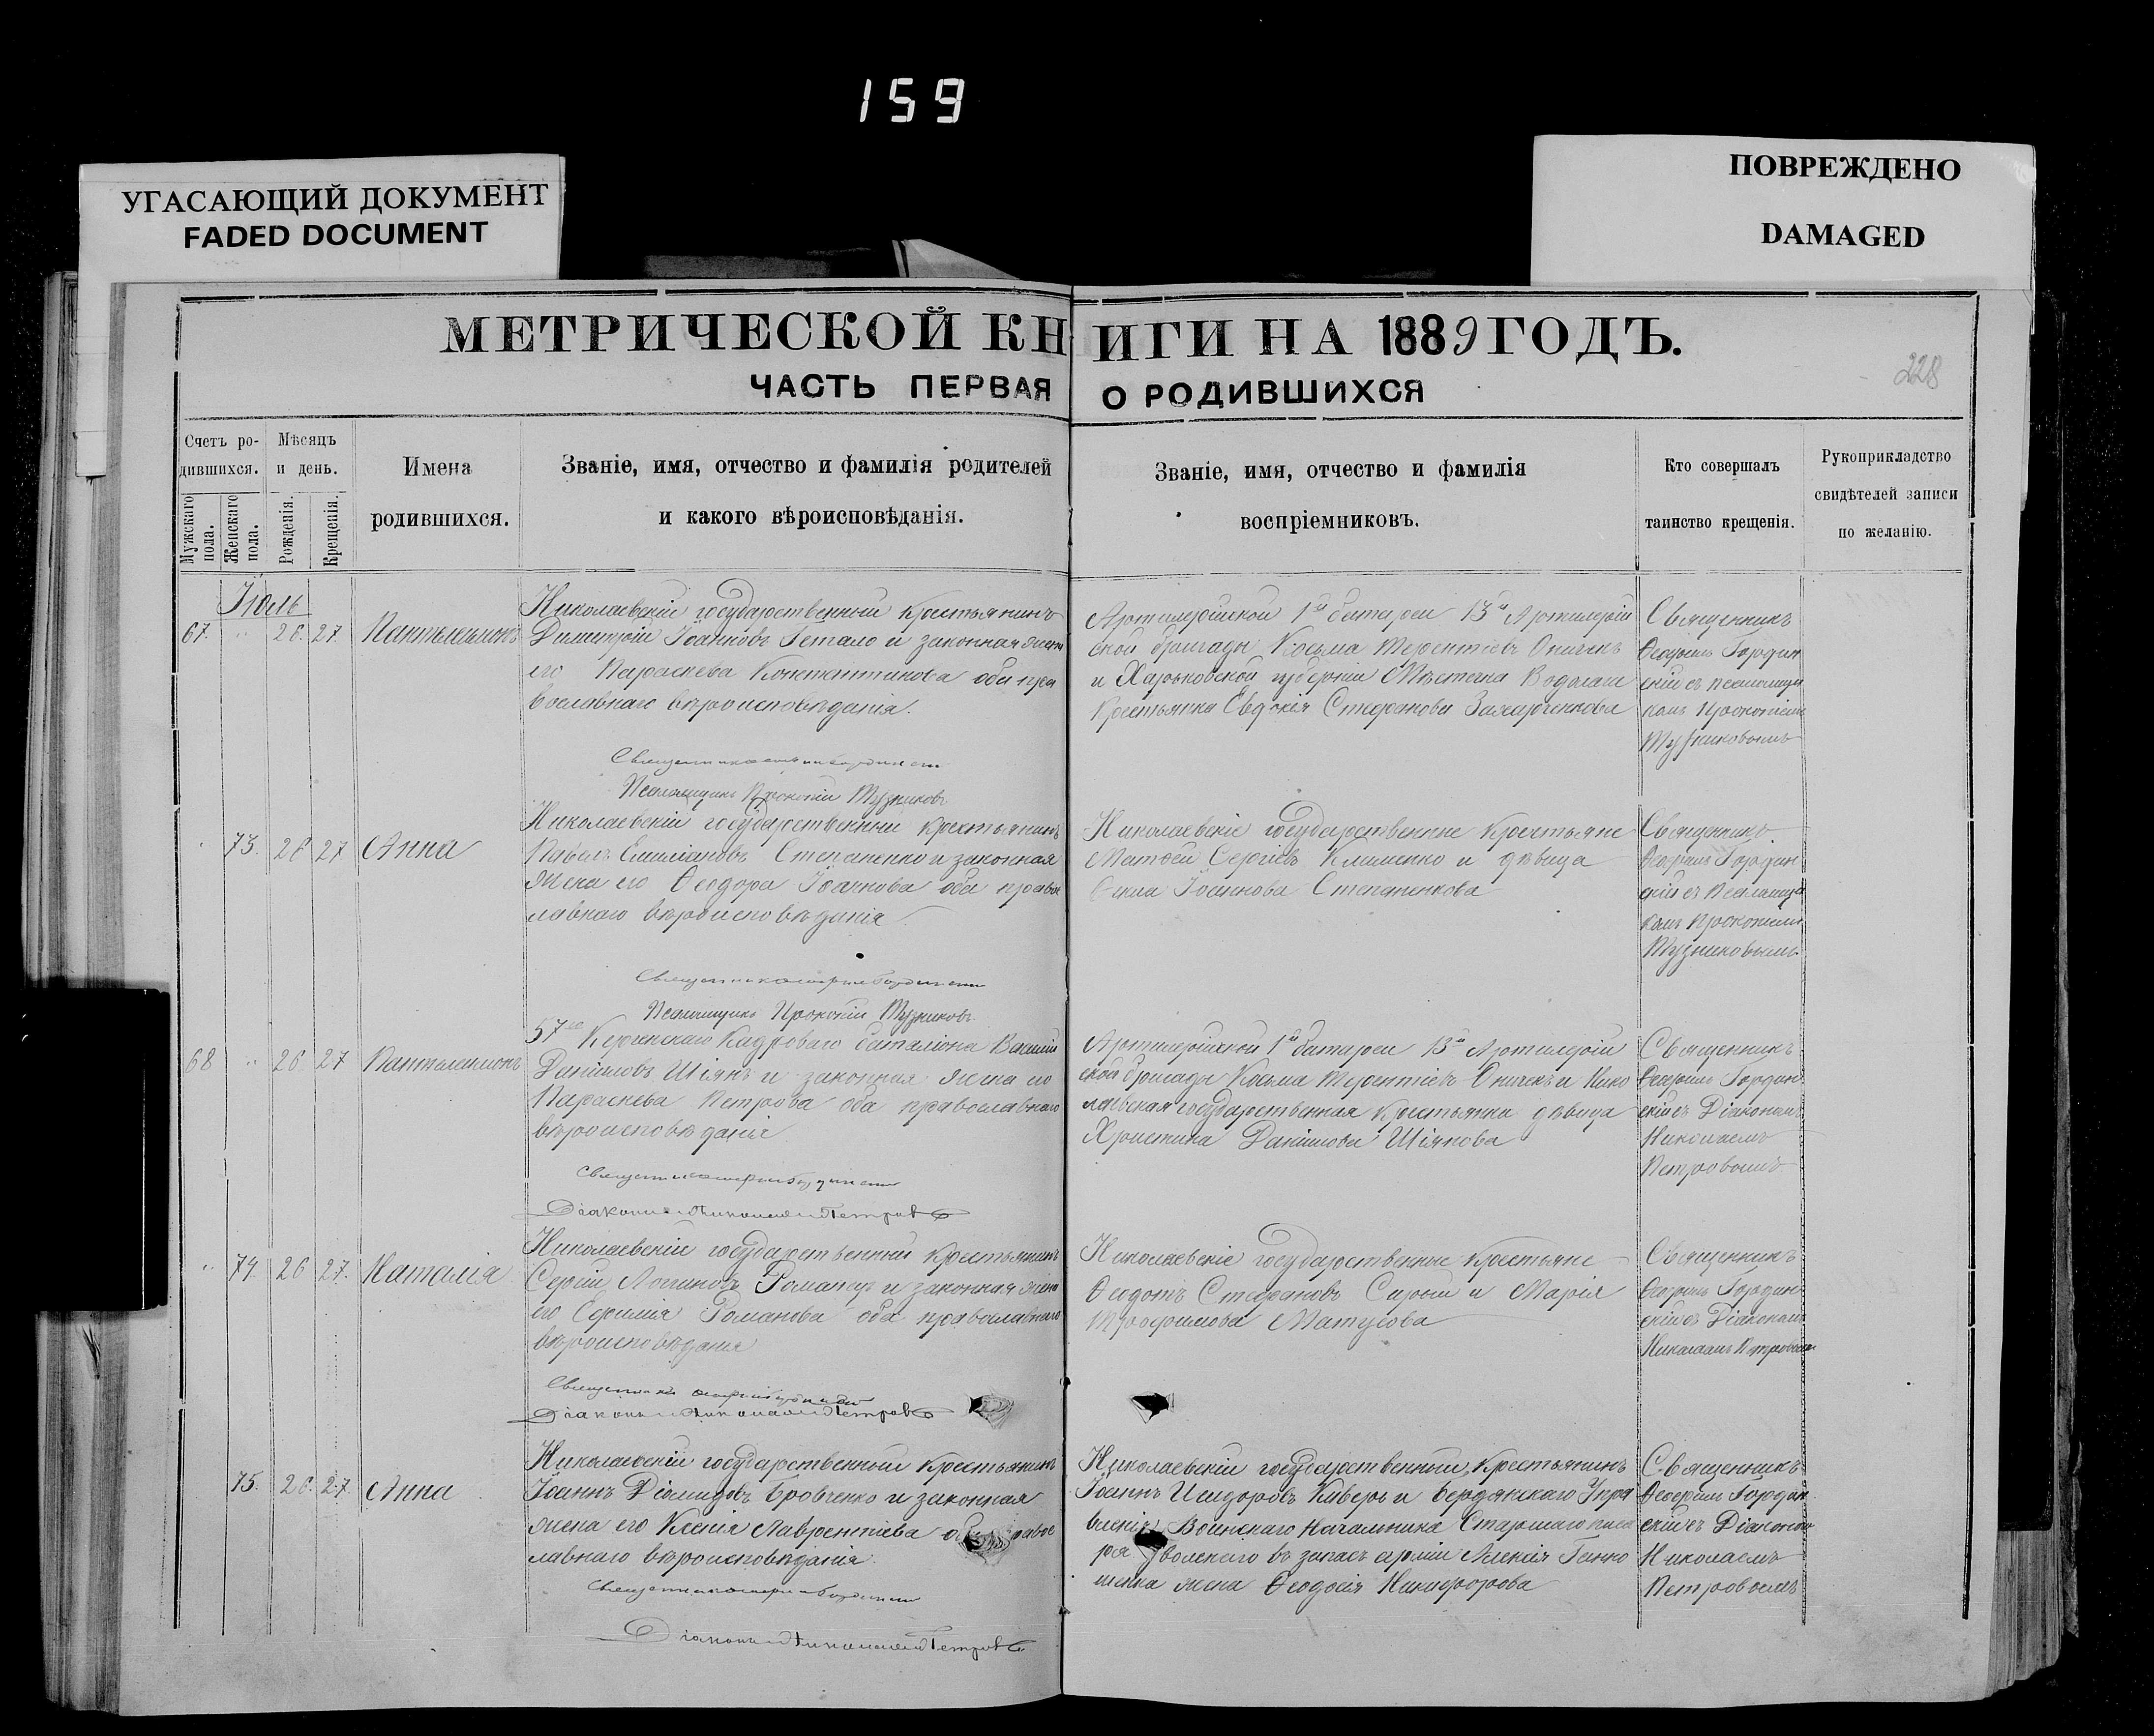 159
УГАСАЮЩИЙ ДОКУМЕНТ
FADED DOCUMENT
ПОВРЕЖДЕНО
DAMAGED
МЕТРИЧЕСКОЙ КНИГИ НА 1889 ГОДЪ.
228
ЧАСТЬ ПЕРВАЯ О РОДИВШИХСЯ
Счетъ ро-
дившихся.
Мужскаго пола.
Женскаго пола.
Мѣсяцъ
и день.
Рожденія.
Крещенія.
Имена
родившихся.
Званіе, имя, отчество и фамилія родителей
и какого вѣроисповѣданія.
Званіе, имя, отчество и фамилія
воспріемниковъ.
Кто совершалъ
таинство крещенія.
Рукоприкладство
свидѣтелей записи
по желанію.
Іюль
67. " 26. 27 Пантелеимонъ
Николаевскій государственный крестьянинъ
Димитрій Іоанновъ Гетало и законная жена
его Параскева Константинова оба пра
вославнаго вѣроисповѣданія.
Артилерійской 1й батареи 13й Артилерій
ской бригады Косьма Терентіевъ Оничекъ
и Харьковской губерніи Мѣстечка Водолаги
Крестьянка Евдокія Стефанова Захарченкова
Священникъ
Ѳеофилъ Гордин
скій съ псаломщи
комъ Прокопіемъ
Тузниковымъ
Псаломщикъ Прокопій Тузниковъ
73. 26 27 Анна
Николаевскій государственный крестьянинъ
Павелъ Емиліановъ Степаненко и законная
жена его Ѳеодора Іоаннова оба право
славнаго вѣроисповѣданія
Николаевскіе государственные крестьяне
Матѳей Сергіевъ Клименко и дѣвица
Іоаннова Степаненкова
Священникъ
Ѳеофилъ Гордин
скій съ Псаломщи
комъ Прокопіемъ
Тузниковымъ
Псаломщикъ Прокопій Тузниковъ
68 " 26 27 Пантелеимонъ
57го Керчинскаго Кадроваго баталіона Василій
Даніиловъ Шіянъ и законная жена его
Параскева Петрова оба православнаго
вѣроисповѣданія
Артилерійской 1й батареи 13й Артилерій
ской бригады Косьма Терентіевъ Оничекъ и Нико
лаевская государственная Крестьянка дѣвица
Христина Даніилова Шіянова
Священникъ
Ѳеофилъ Гордин
скій съ Діакономъ
Николаемъ
Петровымъ
Діаконъ Николай Петровъ
" 74. 26 27. Наталія
Николаевскій государственный Крестьянинъ
Сергій Логиновъ Романецъ и законная жена
его Ефимія Романова оба православнаго
вѣроисповѣданія
Николаевскіе государственные Крестьяне
Ѳеодотъ Стефановъ Сирый и Марія
Трофимова Матусова
Священникъ
Ѳеофилъ Гордин
скій съ Діакономъ
Николаемъ Петровымъ
Діаконъ Николай Петровъ
75. 26. 27. Анна
Николаевскій государственный Крестьянинъ
Іоаннъ Діомидовъ Бровченко и законная
жена его Ксенія Лаврентіева оба право
славнаго вѣроисповѣданія.
Николаевскій государственный Крестьянинъ
Іоаннъ Исидоровъ Каверъ и Бердянскаго Упра
вленія Воинскаго Начальника Старшаго писа
ря уволенаго въ запасъ арміи Алексія
жена Ѳеодосія Никифорова
Священникъ
Ѳеофилъ Гордин
скій съ Діакономъ
Николаемъ
Петровымъ
Діаконъ Николай Петровъ